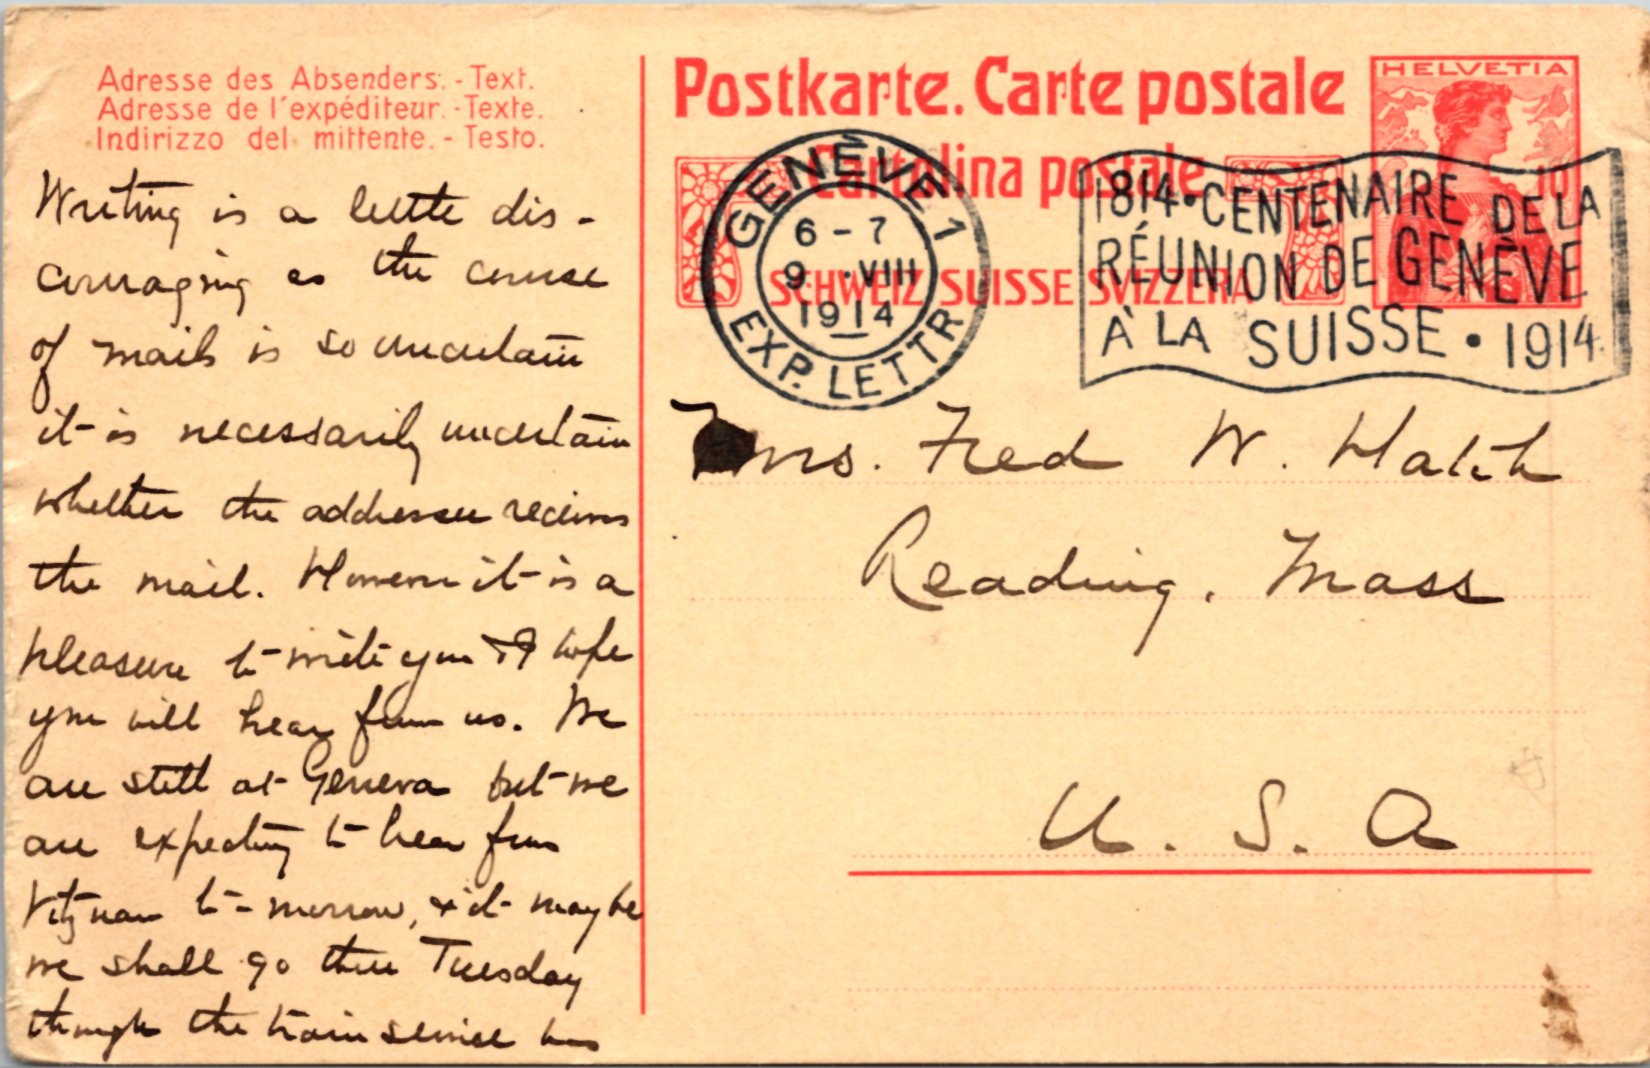 Adresse des Absenders. - Text.
Adresse de l'expéditeur. - Texte.
Indirizzo del mittente. - Testo.
Writing is a little dis-
couraging as the course
of mails is so uncertain
it is necessarily uncertain
whether the addressee receives
the mail. However it is a
pleasure to write you & I hope
you will hear from us. We
are still at Geneva but we
are expecting to hear from
Vitznau to-morrow, & it may be
we shall go there Tuesday
though the train service has
Postkarte. Carte postale
Cartolina postale
SCHWEIZ SUISSE SVIZZERA
HELVETIA
10
GENÈVE 1
6 - 7
9 ·VIII
1914
EXP. LETTR
1814·CENTENAIRE DE LA
RÉUNION DE GENÈVE
À LA SUISSE · 1914
Mrs. Fred W. Hatch
Reading. Mass
U. S. A